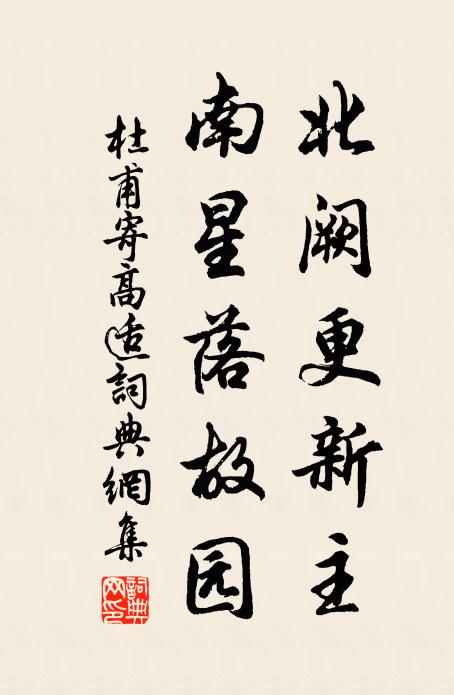 北阙更新主
南星落故园
杜甫寄高适詞典網集
詞典网印